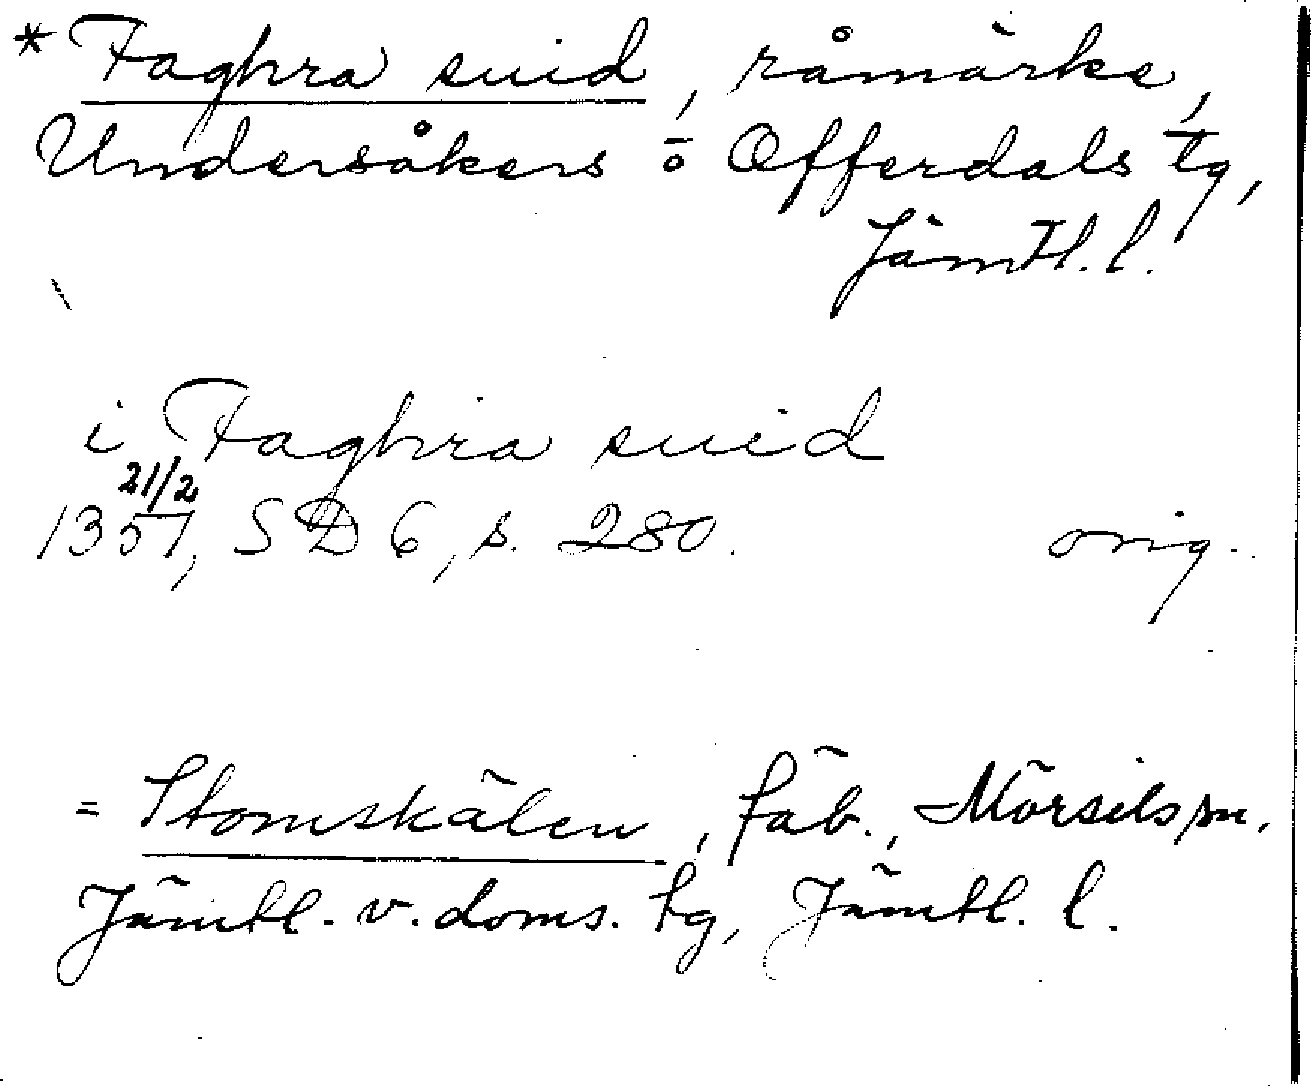 * Faghra suid, råmärke,
Undersåkers o Offerdals tg,
Jämtl. l.
i Faghra suid
21/2
1357, SD 6, s. 280. orig.
= Stomskälen, fäb., Mörsils sn,
Jämtl. v. doms. tg, Jämtl. l.